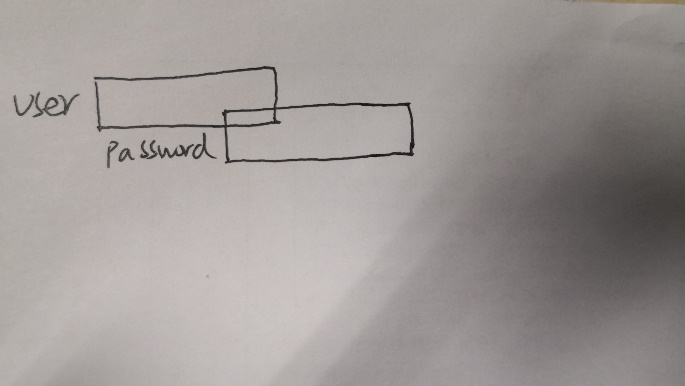 user
password